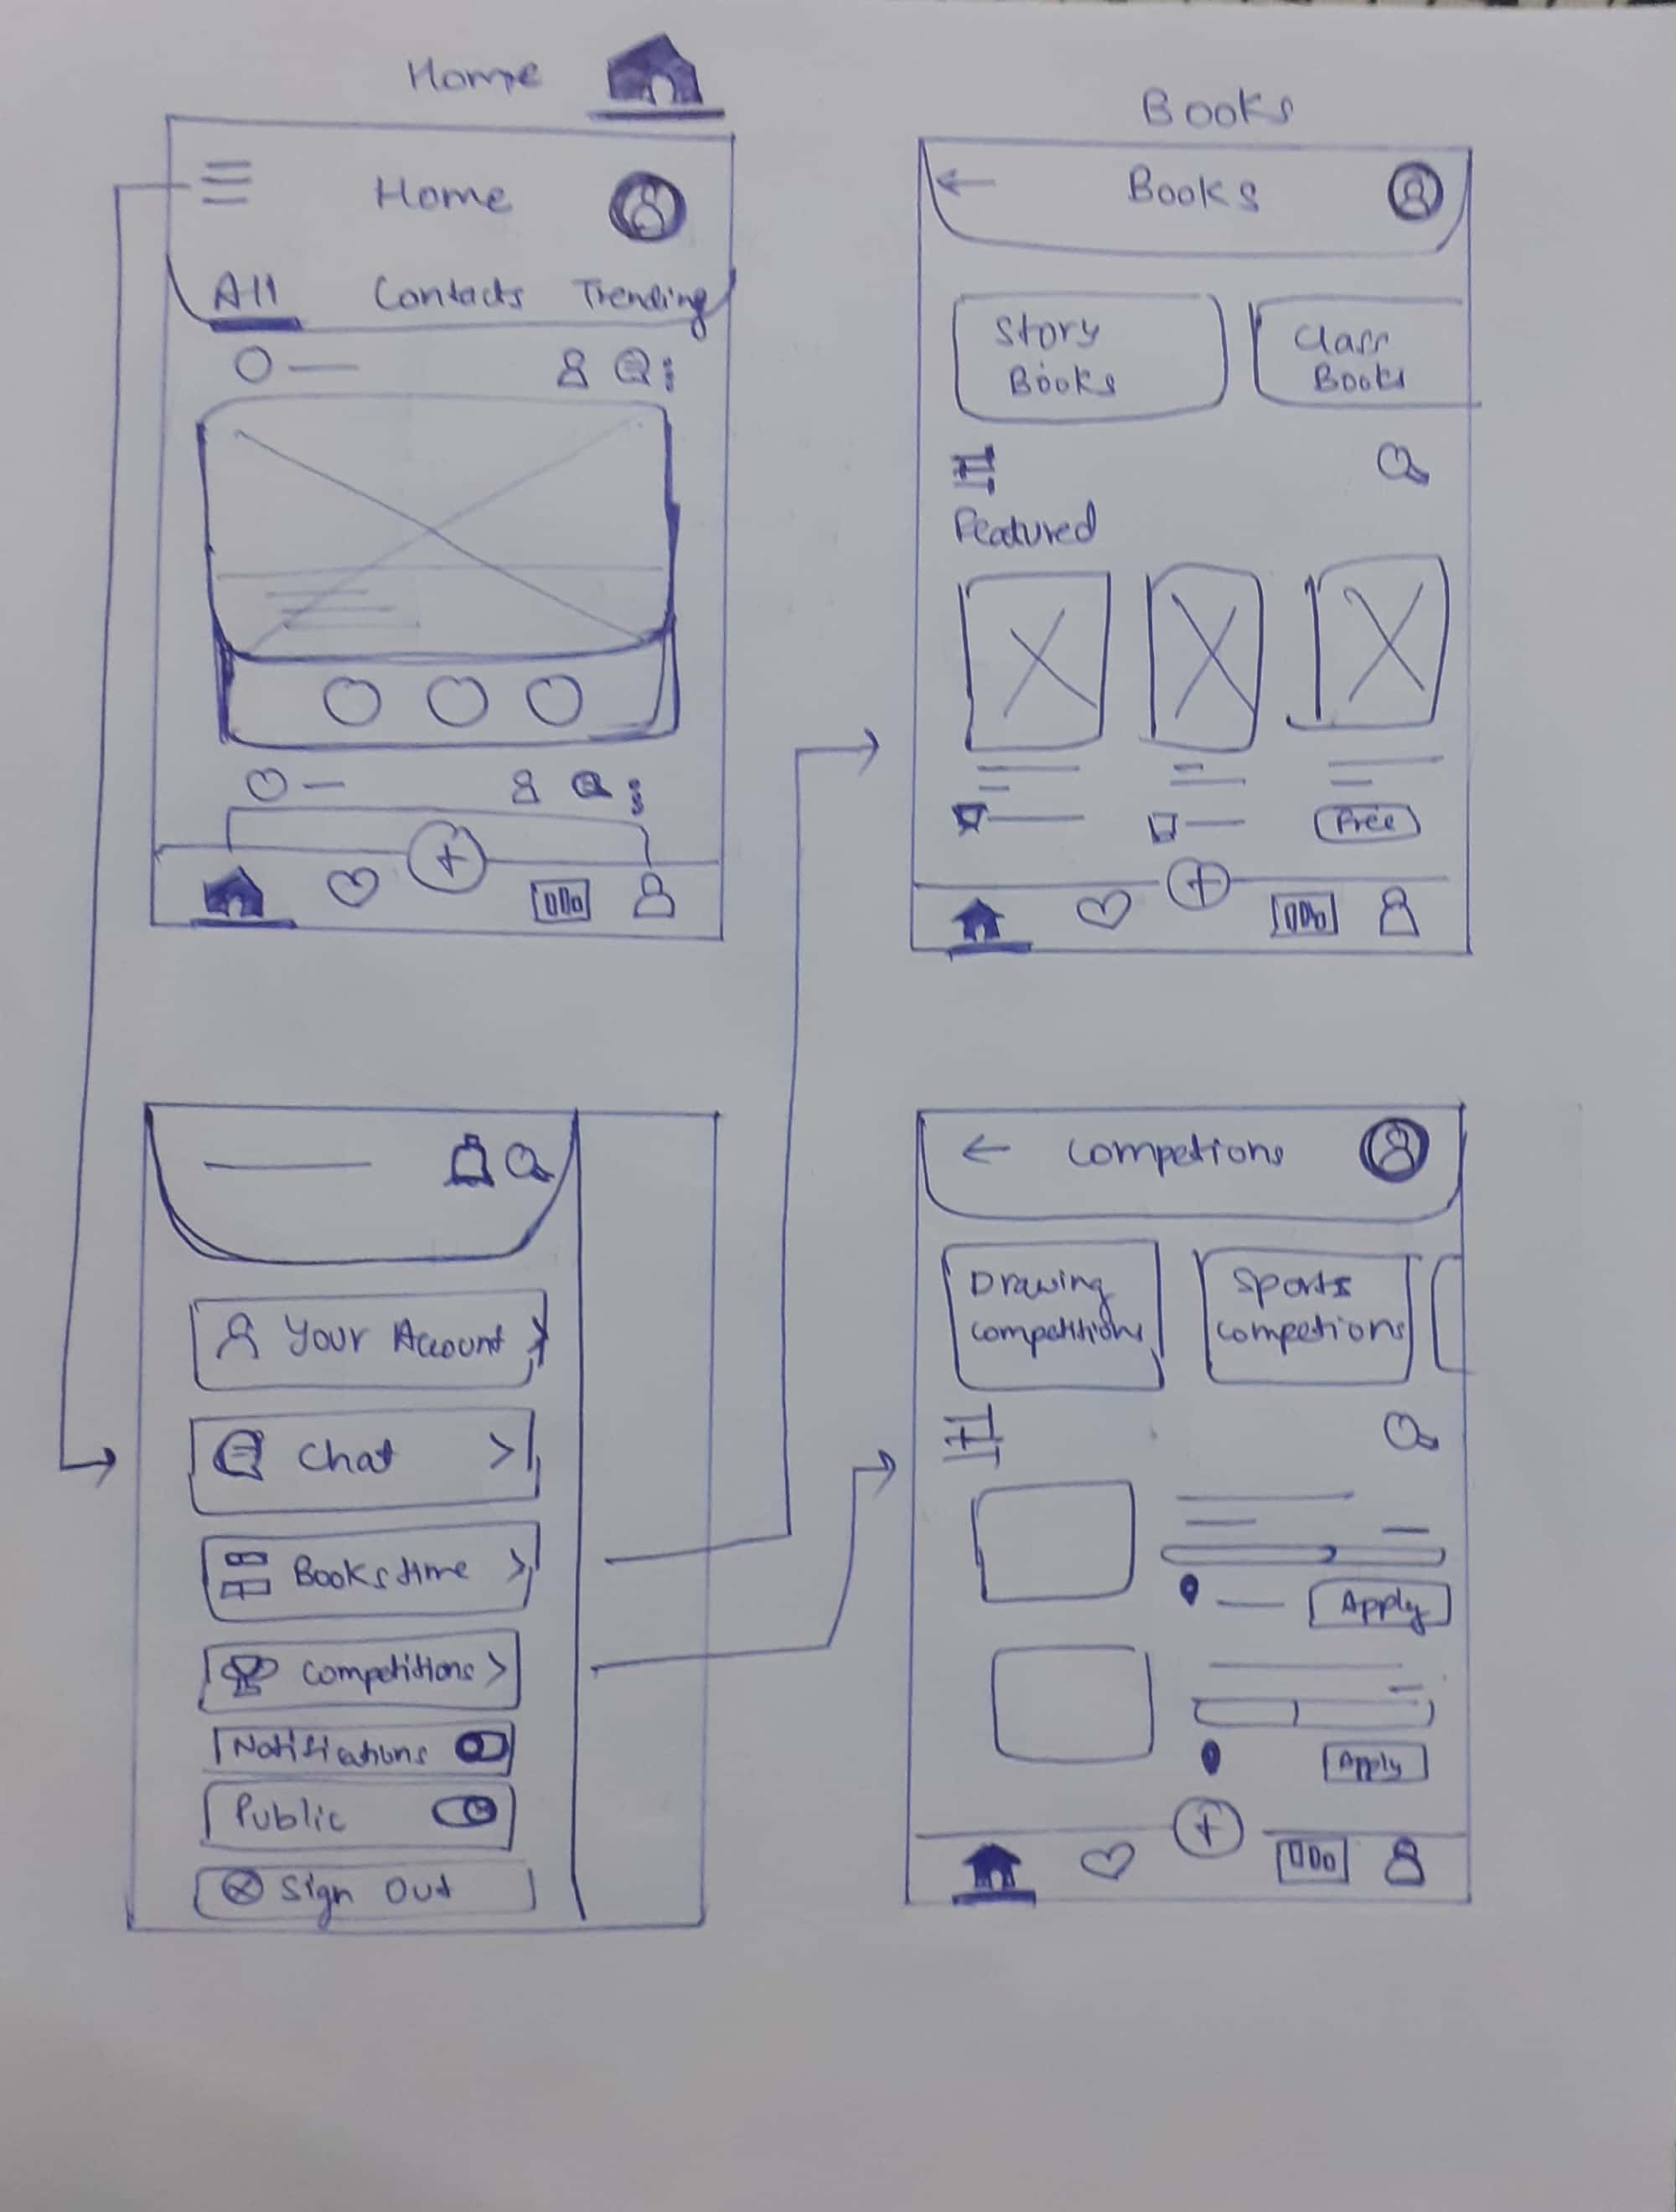 Home
Home
All Contacts Trending
Books
Books
Story
Books
Class
Books
Featured
Free
Your Account
Chat
Books time
Competitions
Notifications
Public
Sign Out
Competions
Drawing
Competitions
Sports
Competions
Apply
Apply